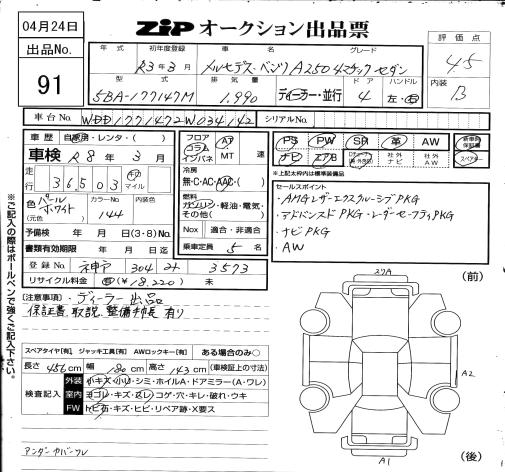 04月24日
出品No.
91
ZIP オークション出品票
評価点
4.5
内装
B
年式 初年度登録 車名 グレード
R3年3月 メルセデス・ベンツ A250 4マチックセダン
型式 排気量 ドア ハンドル
5BA-177147M 1,990 ディーラー・並行 4 左・右
車台No. WDD1771472W034142 シリアルNo.
車歴 自家用・レンタ・( )
車検 R8年3月
走行 36503 km マイル
色 パールホワイト (元色) カラーNo. 144 内装色
予備検 年 月 日(3・8)No.
書類有効期限 年 月 日迄
登録No. 神戸 304 み 3573
リサイクル料金 有(¥18,220) 未
フロア コラム インパネ AT MT 速
冷房 無・C・AC・AAC・( )
燃料 ガソリン・軽油・電気・その他( )
Nox 適合・非適合
乗車定員 5名
PS PW SR 革 AW 新車時保証書
ナビ エアB 社外ナビ 社外AW スペアキー
※上記太わくは標準装備品
セールスポイント
・AMGレザーエクスクルーシブPKG
・アドバンスドPKG・レーダーセーフティPKG
・ナビPKG
・AW
[注意事項]・ディーラー出品
保証書、取説、整備手帳有り
スペアタイヤ[有] ジャッキ工具[有] AWロックキー[有] ある場合のみ○
長さ 456cm 幅 180cm 高さ 143cm (車検証の寸法)
検査記入
外装 小キズ・小凹・シミ・ホイルA・ドアミラー(A・ワレ)
室内 ヨゴレ・キズ・スレ・コゲ・穴・キレ・破れ・ウキ
FW トビ石・キズ・ヒビ・リペア跡・X要ス
アンダーカバーワレ
(前)
27A
A2
A1
(後)
※ご記入の際はボールペンで強くご記入下さい。